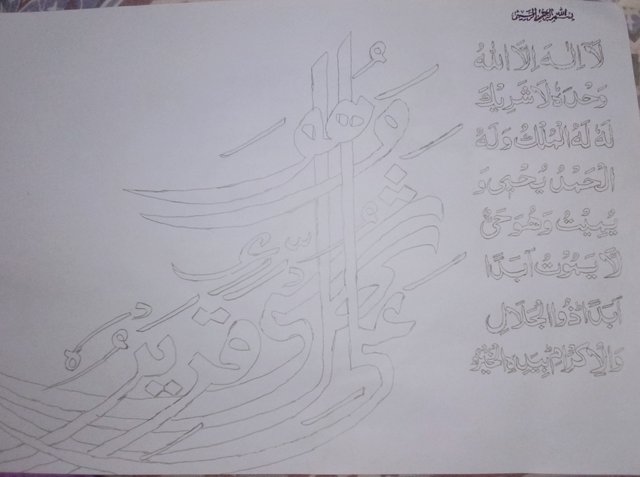 بسم الله الرحمن الرحيم
لَآ اِلٰهَ اِلَّا اللهُ
وَحْدَهٗ لَا شَرِيْكَ
لَهٗ لَهُ الْمُلْكُ وَلَهُ
الْحَمْدُ يُحْيٖ وَ
يُمِيْتُ وَهُوَ حَيٌّ
لَّا يَمُوْتُ اَبَدًا
اَبَدًا ذُو الْجَلَالِ
وَالْاِكْرَامِ بِيَدِهِ الْخَيْرُ
وَهُوَ عَلٰى كُلِّ شَيْءٍ قَدِيْرٌ